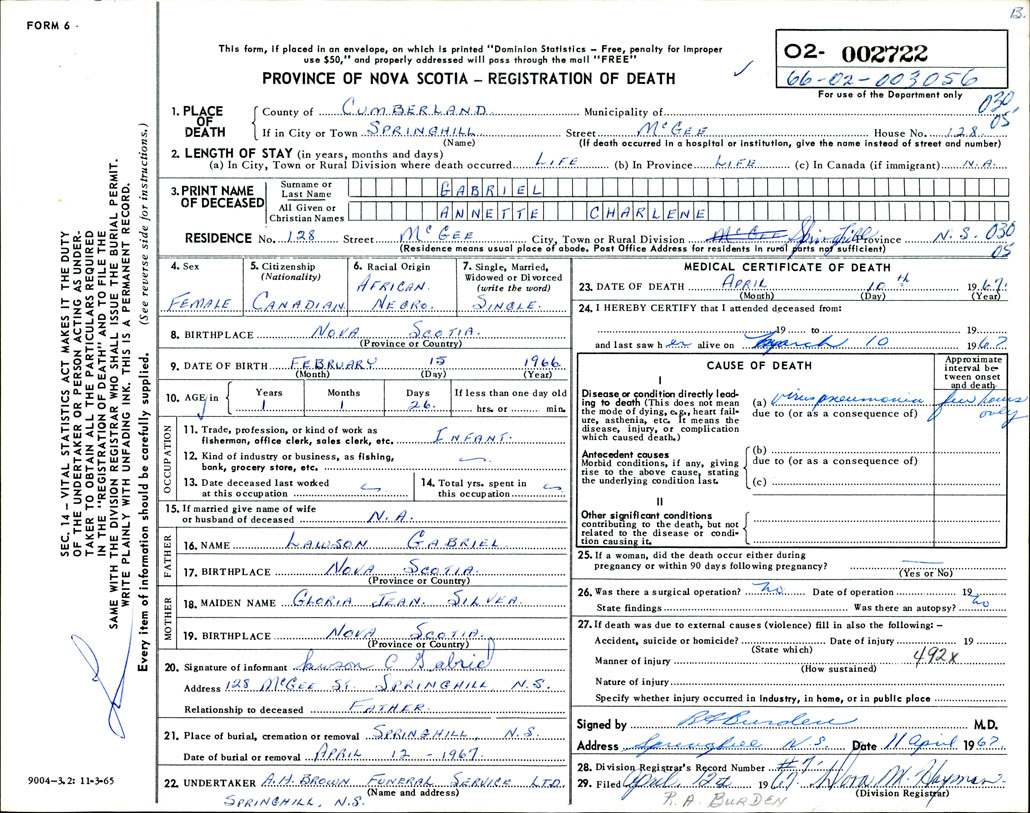 B.
FORM 6
This form, if placed in an envelope, on which is printed "Dominion Statistics – Free, penalty for improper
use $50," and properly addressed will pass through the mail "FREE"
PROVINCE OF NOVA SCOTIA – REGISTRATION OF DEATH
02- 002722
66-02-003056
For use of the Department only
SEC. 14 – VITAL STATISTICS ACT MAKES IT THE DUTY
OF THE UNDERTAKER OR PERSON ACTING AS UNDER-
TAKER TO OBTAIN ALL THE PARTICULARS REQUIRED
IN THE "REGISTRATION OF DEATH" AND TO FILE THE
SAME WITH THE DIVISION REGISTRAR WHO SHALL ISSUE THE BURIAL PERMIT.
WRITE PLAINLY WITH UNFADING INK. THIS IS A PERMANENT RECORD.
Every item of information should be carefully supplied. (See reverse side for instructions.)
1. PLACE OF DEATH
County of CUMBERLAND Municipality of 030
If in City or Town SPRINGHILL Street McGEE House No. 128. 05
(Name) (If death occurred in a hospital or institution, give the name instead of street and number)
2. LENGTH OF STAY (in years, months and days)
(a) In City, Town or Rural Division where death occurred LIFE (b) In Province LIFE (c) In Canada (if immigrant) N.A.
3. PRINT NAME OF DECEASED
Surname or Last Name GABRIEL
All Given or Christian Names ANNETTE CHARLENE
RESIDENCE No. 128 Street McGEE City, Town or Rural Division McGEE Springhill Province N.S. 030
(Residence means usual place of abode. Post Office Address for residents in rural parts not sufficient) 05
4. Sex FEMALE
5. Citizenship (Nationality) CANADIAN
6. Racial Origin AFRICAN. NEGRO.
7. Single, Married, Widowed or Divorced (write the word) SINGLE.
8. BIRTHPLACE NOVA SCOTIA.
(Province or Country)
9. DATE OF BIRTH FEBRUARY 15 1966
(Month) (Day) (Year)
10. AGE in Years 1 Months 1 Days 26. If less than one day old hrs. or min.
OCCUPATION
11. Trade, profession, or kind of work as
fisherman, office clerk, sales clerk, etc. INFANT.
12. Kind of industry or business, as fishing,
bank, grocery store, etc.
13. Date deceased last worked
at this occupation
14. Total yrs. spent in
this occupation
15. If married give name of wife
or husband of deceased N.A.
FATHER
16. NAME LAWSON GABRIEL
17. BIRTHPLACE NOVA SCOTIA.
(Province or Country)
MOTHER
18. MAIDEN NAME GLORIA JEAN. SILVEA.
19. BIRTHPLACE NOVA SCOTIA.
(Province or Country)
20. Signature of informant Lawson C Gabriel
Address 128 McGEE ST. SPRINGHILL, N.S.
Relationship to deceased FATHER.
21. Place of burial, cremation or removal SPRINGHILL, N.S.
Date of burial or removal APRIL 12 - 1967.
22. UNDERTAKER A.H. BROWN FUNERAL SERVICE LTD.
(Name and address)
SPRINGHILL, N.S.
9004–3.2: 11-3-65
MEDICAL CERTIFICATE OF DEATH
23. DATE OF DEATH APRIL 10th 1967.
(Month) (Day) (Year)
24. I HEREBY CERTIFY that I attended deceased from:
19 to 19
and last saw her alive on March 10 1967
CAUSE OF DEATH
Approximate interval between onset and death
I
Disease or condition directly lead-
ing to death (This does not mean
the mode of dying, e.g., heart fail-
ure, asthenia, etc. It means the
disease, injury, or complication
which caused death.)
(a) virus pneumonia few hours only
due to (or as a consequence of)
Antecedent causes
Morbid conditions, if any, giving
rise to the above cause, stating
the underlying condition last.
(b)
due to (or as a consequence of)
(c)
II
Other significant conditions
contributing to the death, but not
related to the disease or condi-
tion causing it.
25. If a woman, did the death occur either during
pregnancy or within 90 days following pregnancy?
(Yes or No)
26. Was there a surgical operation? no Date of operation 19
State findings Was there an autopsy? no
27. If death was due to external causes (violence) fill in also the following: –
Accident, suicide or homicide? Date of injury 19
(State which)
Manner of injury 492x
(How sustained)
Nature of injury
Specify whether injury occurred in industry, in home, or in public place
Signed by RA Burden M.D.
Address Springhill N.S. Date 11 April 1967.
28. Division Registrar's Record Number #7.
29. Filed April 12th 1967. Nora M. Hayman
(Division Registrar)
R.A. BURDEN